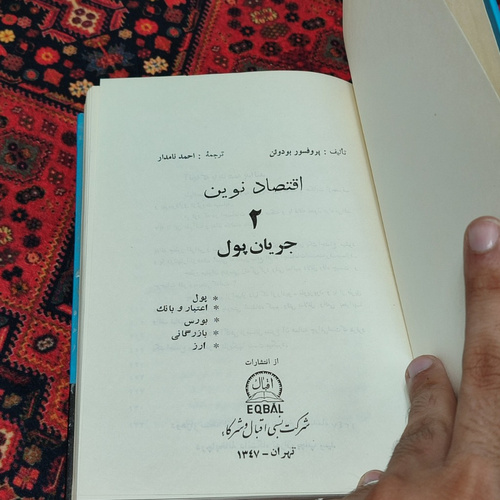 تألیف : پروفسور بودوئن ترجمهٔ : احمد نامدار
اقتصاد نوین
۲
جریان پول
* پول
* اعتبار و بانک
* بورس
* بازرگانی
* ارز
از انتشارات
اقبال
EQBAL
شرکت نسبی اقبال و شرکاء
تهران - ۱۳۴۷